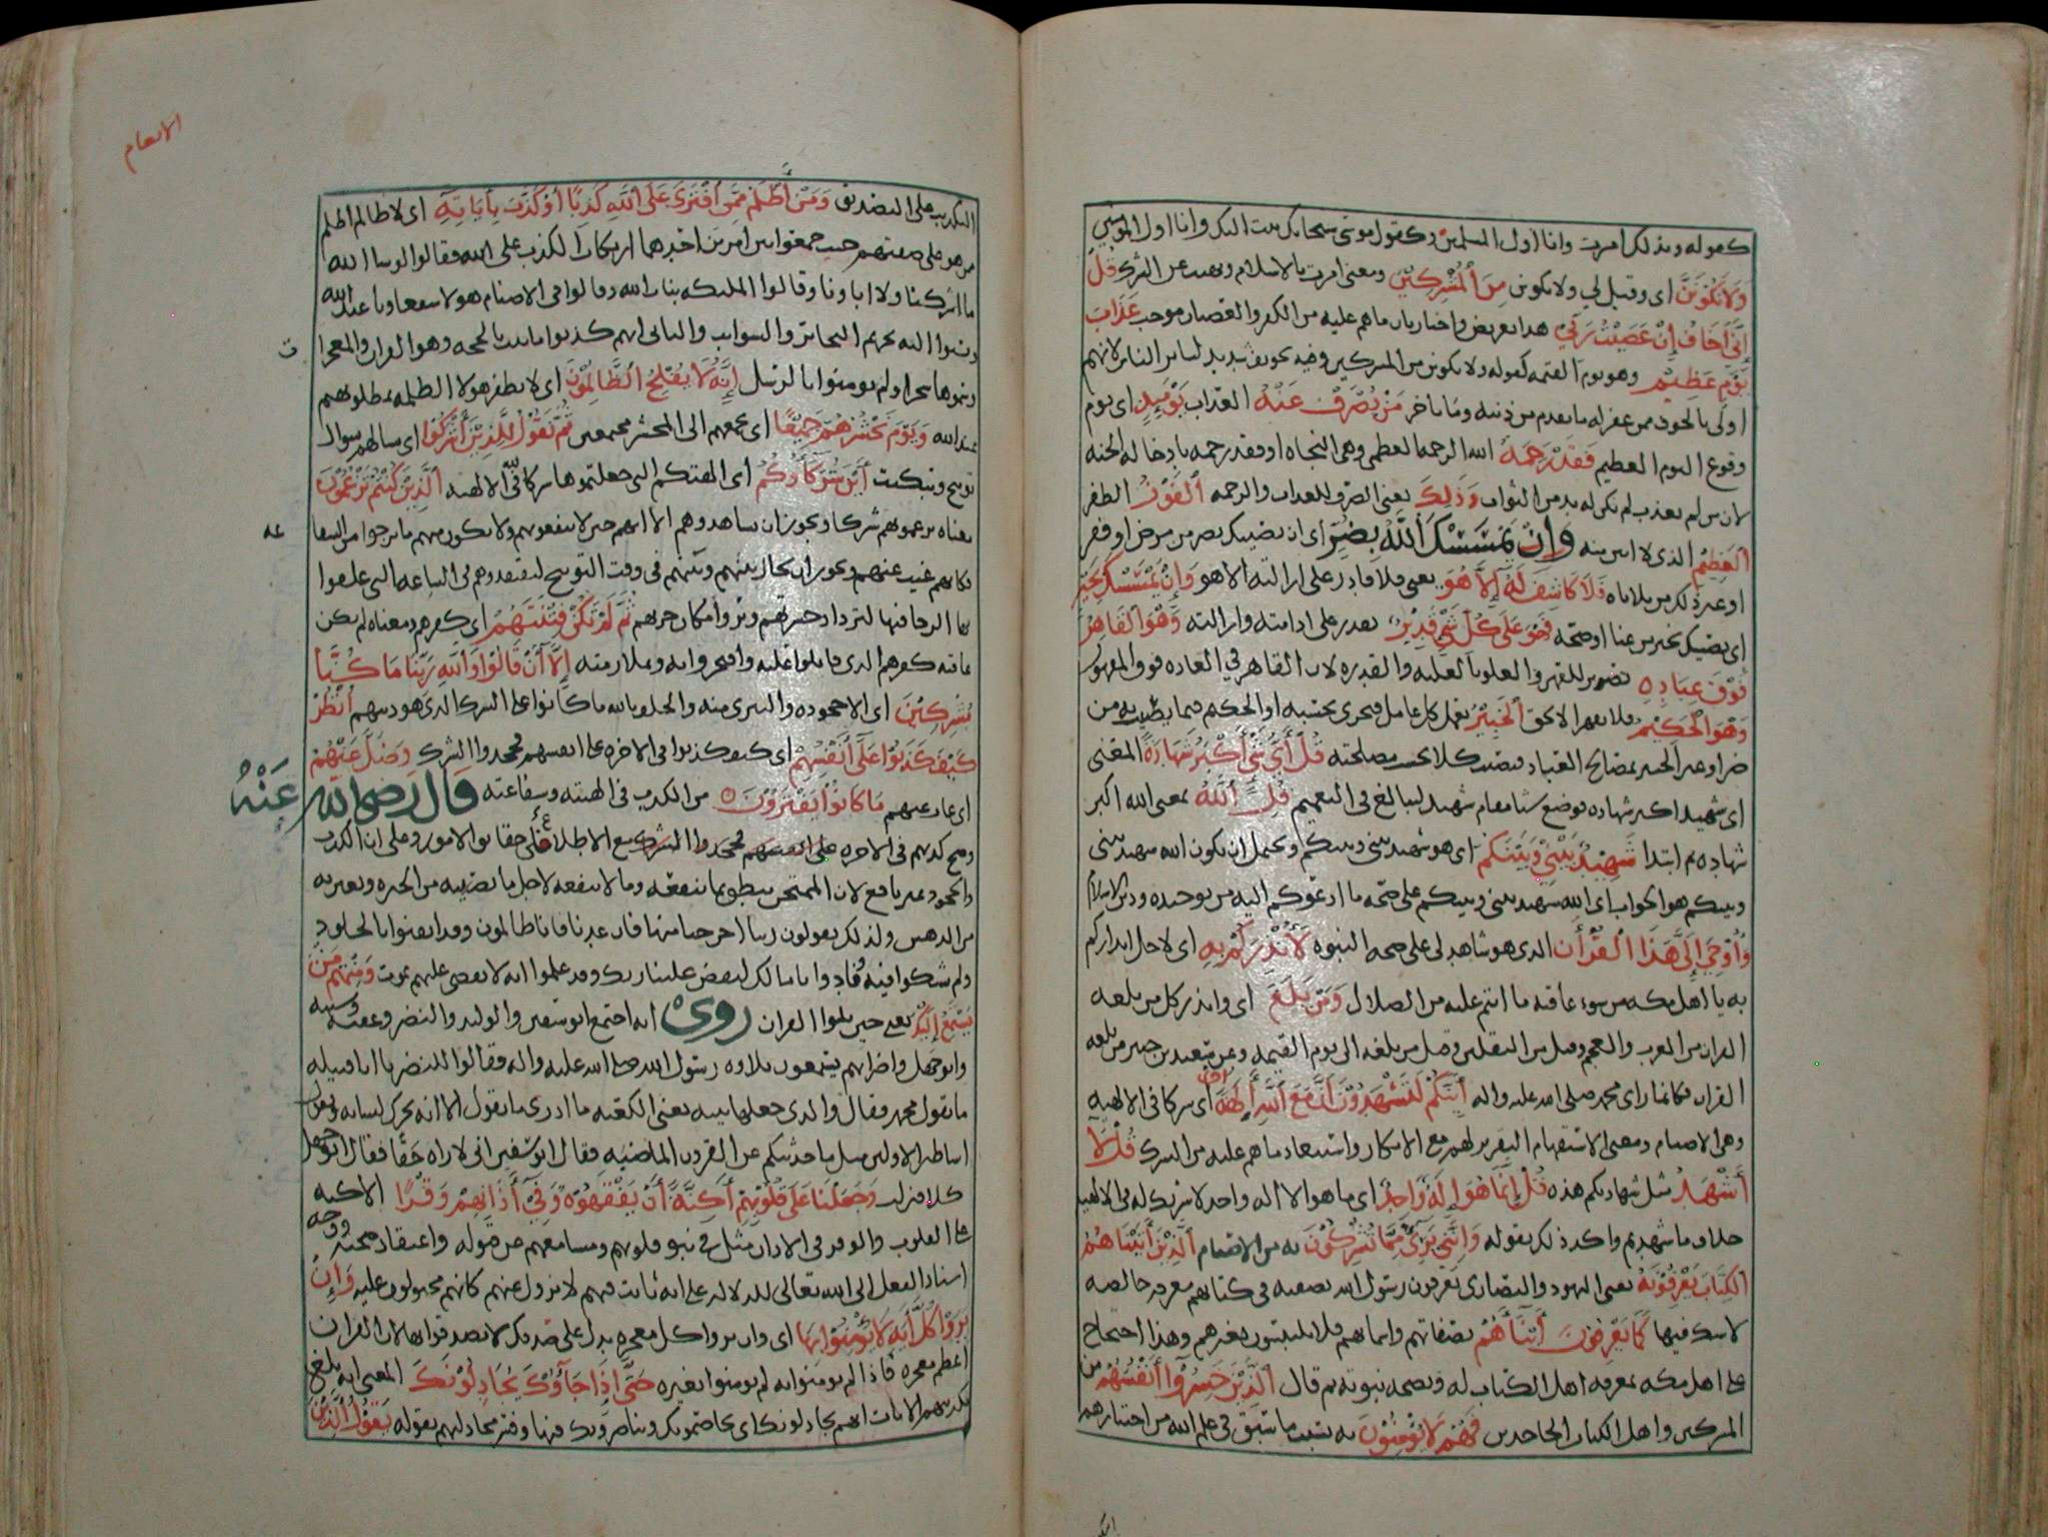 كقوله وبذلك امرت وانا اول المسلمين وكقول موسى سبحانك تبت اليك وانا اول المؤمنين
وَلَا تَكُونَنَّ اى وقيل لي ولا تكونن مِنَ الْمُشْرِكِيْنَ ومعنى امرت بالاسلام ونهيت عن الشرك قُلْ
إِنِّي أَخَافُ إِنْ عَصَيْتُ رَبِّي هذا تعريض واخبار بان ماهم عليه من الكفر والعصيان موجب عَذَابَ
يَوْمٍ عَظِيْمٍ وهو يوم القيمه كقوله ولا تكونن من المشركين وفيه تخويف شديد لسائر الناس لانهم
اولى بالخوف ممن غفر له ما تقدم من ذنبه وما تاخر مَنْ يُصْرَفْ عَنْهُ العذاب يَوْمَئِذٍ اى يوم
وقوع اليوم العظيم فَقَدْ رَحِمَهُ الله الرحمه العظمى وهى النجاه او فقد رحمه بادخاله الجنه
لان من لم يعذب لم يكن له بد من الثواب وَذَلِكَ يعنى الصرف للعذاب والرحمه الْفَوْزُ الظفر
الْعَظِيْمُ الذى لا منه وَإِنْ يَمْسَسْكَ اللَّهُ بِضُرٍّ اى ان يصيبك بضر من مرض او فقر
او غير ذلك من بلاياه فَلَا كَاشِفَ لَهُ إِلَّا هُوَ يعنى فلا قادر على ازالته الا هو وَإِنْ يَمْسَسْكَ بِخَيْرٍ
اى يصيبك بخير من غنا او صحه فَهُوَ عَلَى كُلِّ شَيْءٍ قَدِيْرٌ يقدر على ادامته وازالته وَهُوَ الْقَاهِرُ
فَوْقَ عِبَادِهِ تصوير للقهر والعلو بالغلبه والقدره لان القاهر في العاده فوق المقهور
وَهُوَ الْحَكِيْمُ فلا يقهر الا بحق الْخَبِيْرُ بعمل كل عامل فيجرى بحسبه او الحكيم فيما يصيب به من
ضر او غير الخبير بمصالح العباد فيصيب كلا بحسب مصلحته قُلْ أَيُّ شَيْءٍ أَكْبَرُ شَهَادَةً المعنى
اى شهيد اكبر شهاده فوضع شيا مقام شهيد ليبالغ فى التعميم قُلِ اللَّهُ بمعنى الله اكبر
شهاده ثم ابتدا شَهِيْدٌ بَيْنِيْ وَبَيْنَكُمْ اى هو شهيد بينى وبينكم ويحتمل ان يكون الله شهيد بينى
وبينكم هو الجواب اى الله شهيد بينى وبينكم على صحه ما ادعوكم اليه من توحيده ودين الاسلام
وَأُوْحِيَ إِلَيَّ هَذَا الْقُرْآنُ الذى هو شاهد لى على صحه النبوه لِأُنْذِرَكُمْ بِهِ اى لاجل انذاركم
به يا اهل مكه من سوء عاقبه ما انتم عليه من الضلال وَمَنْ بَلَغَ اى وانذر كل من بلغه
القران من العرب والعجم وقيل من الثقلين وقيل من بلغه الى يوم القيمه وعن سعيد بن جبير من بلغه
القران فكانما راى محمد صلى الله عليه واله أَئِنَّكُمْ لَتَشْهَدُوْنَ أَنَّ مَعَ اللَّهِ آلِهَةً أُخْرَى اى شركا فى الالهيه
وهى الاصنام ومعنى الاستفهام التقرير لهم مع الانكار واستبعاد ماهم عليه من الشرك قُلْ لَا
أَشْهَدُ مثل شهادتكم هذه قُلْ إِنَّمَا هُوَ إِلَهٌ وَاحِدٌ اى ما هو الا اله واحد لا شريك له فى الالهيه
خلاف ما شهدتم واكد ذلك بقوله وَإِنَّنِي بَرِيْءٌ مِمَّا تُشْرِكُوْنَ به من الاصنام الَّذِيْنَ آتَيْنَاهُمُ
الْكِتَابَ يَعْرِفُوْنَهُ يعنى اليهود والنصارى يعرفون رسول الله بصفته فى كتابهم معرفه خالصه
لا شك فيها كَمَا يَعْرِفُوْنَ أَبْنَاءَهُمْ بصفاتهم واسماهم فلا يلتبسون بغيرهم وهذا احتجاج
على اهل مكه بمعرفه اهل الكتاب له وبصحه نبوته ثم قال الَّذِيْنَ خَسِرُوا أَنْفُسَهُمْ من
المشركين واهل الكتاب الجاحدين فَهُمْ لَا يُؤْمِنُوْنَ به بسبب ما سبق فى علم الله من اختيارهم
الانعام
التكذيب على التصديق وَمَنْ أَظْلَمُ مِمَّنِ افْتَرَى عَلَى اللَّهِ كَذِبًا أَوْ كَذَّبَ بِآيَاتِهِ اى لا ظالم اظلم
ممن هو على صفتهم حيث جمعوا بين امرين احدهما ارتكاب الكذب على الله فقالوا لو شا الله
ما اشركنا ولا اباونا وقالوا الملئكه بنات الله وقالوا فى الاصنام هولا شفعاونا عند الله
ونسبوا اليه تحريم البحائر والسوايب والثانى انهم كذبوا ما ثبت بالحجه وهو القران والمعجزات
وسموها سحرا ولم يومنوا بالرسل إِنَّهُ لَا يُفْلِحُ الظَّالِمُوْنَ اى لا يظفر هولا الظلمه بمطلوبهم
عند الله وَيَوْمَ نَحْشُرُهُمْ جَمِيْعًا اى نجمعهم الى المحشر مجتمعين ثُمَّ نَقُوْلُ لِلَّذِيْنَ أَشْرَكُوْا اى نسالهم سوال
توبيخ وتبكيت أَيْنَ شُرَكَاؤُكُمُ اى الهتكم التى جعلتموها شركا فى الالهيه الَّذِيْنَ كُنْتُمْ تَزْعُمُوْنَ
معناه تزعمونهم شركا ويجوز ان يشاهدوهم الا انهم حين لا ينفعونهم ولا يكون منهم ما يرجوا من الشفاعه
فكانهم غيب عنهم ويجوز ان يحال بينهم وبينهم فى وقت التوبيخ ليفقدوهم فى الساعه التى علقوا
بها الرجا فيها لتزداد حسرتهم ويروا مكان خزيهم ثُمَّ لَمْ تَكُنْ فِتْنَتُهُمْ اى كفرهم ومعناه لم يكن
عاقبه كفرهم الذى قاتلوا عليه وافتخروا به وملازمته إِلَّا أَنْ قَالُوْا وَاللَّهِ رَبِّنَا مَا كُنَّا
مُشْرِكِيْنَ اى الا جحوده والتبرى منه والحلف بالله ما كانوا على الشرك الذى هو دينهم انْظُرْ
كَيْفَ كَذَبُوْا عَلَى أَنْفُسِهِمْ اى كيف كذبوا فى الاخره على انفسهم فجحدوا الشرك وَضَلَّ عَنْهُمْ
اى غاب عنهم مَا كَانُوْا يَفْتَرُوْنَ من الكذب فى الهيته وشفاعته قال رضى الله عَنْهُ
وصح كذبهم فى الاخره على انفسهم فجحدوا الشرك مع الاطلاع على حقائق الامور وعلى ان الكذب
والجحود غير نافع لان الممتحن ينطق بما ينفعه وما لا ينفعه لاجل ما يصيبه من الحيره ويعتريه
من الدهش ولذلك يقولون ربنا اخرجنا منها فان عدنا فانا ظالمون وقد ايقنوا بالخلود
ولم يشكوا فيه ونادوا يا مالك ليقض علينا ربك وقد علموا انه لا يقضى عليهم بموت وَمِنْهُمْ مَنْ
يَسْتَمِعُ إِلَيْكَ يعنى حين يتلوا القران روى انه اجتمع ابو سفين والوليد والنضر وعتبه وشيبه
وابو جهل واضرابهم يستمعون تلاوه رسول الله صلى الله عليه واله فقالوا للنضر يا ابا قتيله
ما يقول محمد فقال والذى جعلها بيته يعنى الكعبه ما ادرى ما يقول الا انه يحرك لسانه ويقول
اساطير الاولين مثل ما حدثتكم عن القرون الماضيه فقال ابو سفين انى لاراه حقا فقال ابو جهل
كلا فنزلت وَجَعَلْنَا عَلَى قُلُوْبِهِمْ أَكِنَّةً أَنْ يَفْقَهُوْهُ وَفِيْ آذَانِهِمْ وَقْرًا الاكنه
على القلوب والوقر فى الاذان مثل في نبو قلوبهم ومسامعهم عن قبوله واعتقاد صحته ووجه
اسناد الفعل الى الله تعالى للدلاله على انه ثابت فيهم لا يزول عنهم كانهم مجبولون عليه وَإِنْ
يَرَوْا كُلَّ آيَةٍ لَا يُؤْمِنُوْا بِهَا اى وان يروا كل معجزه يدل على صدقك لا يصدقوا بها لان القران
اعظم معجزه فاذا لم يومنوا به لم يومنوا بغيره حَتَّى إِذَا جَاؤُكَ يُجَادِلُوْنَكَ المعنى انه بلغ
تكذيبهم الايات انهم يجادلونك اى يخاصمونك ويناكرونك فيها وفسر مجادلتهم بقوله يَقُوْلُ الَّذِيْنَ